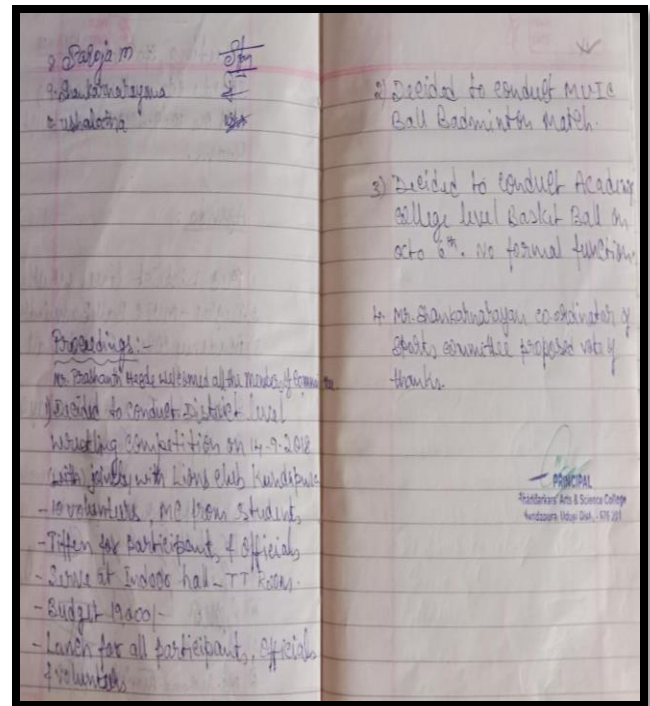 8. Saroja M
9. Shankarnarayana
10. Ushalatha
Proceedings:-
Mr. Prashanth Hegde welcomed all the members of committee.
1) Decided to conduct District level
wrestling competition on 14-9-2018
(with) jointly with Lions Club Kundapura
- 10 volunteers, MC from students
- Tiffen for participants & officials
- Serve at Indoor hall - TT Room.
- Budget 19000/-
- Lunch for all participants, officials
& volunteers
2) Decided to conduct MUIC
Ball Badminton Match.
3) Decided to conduct Academy
college level Basket Ball on
octo 6th. No formal function.
4. Mr. Shankarnarayan co-ordinator of
sports committee proposed vote of
thanks.
PRINCIPAL
Bhandarkars' Arts & Science College
Kundapura Udupi Dist. - 576 201